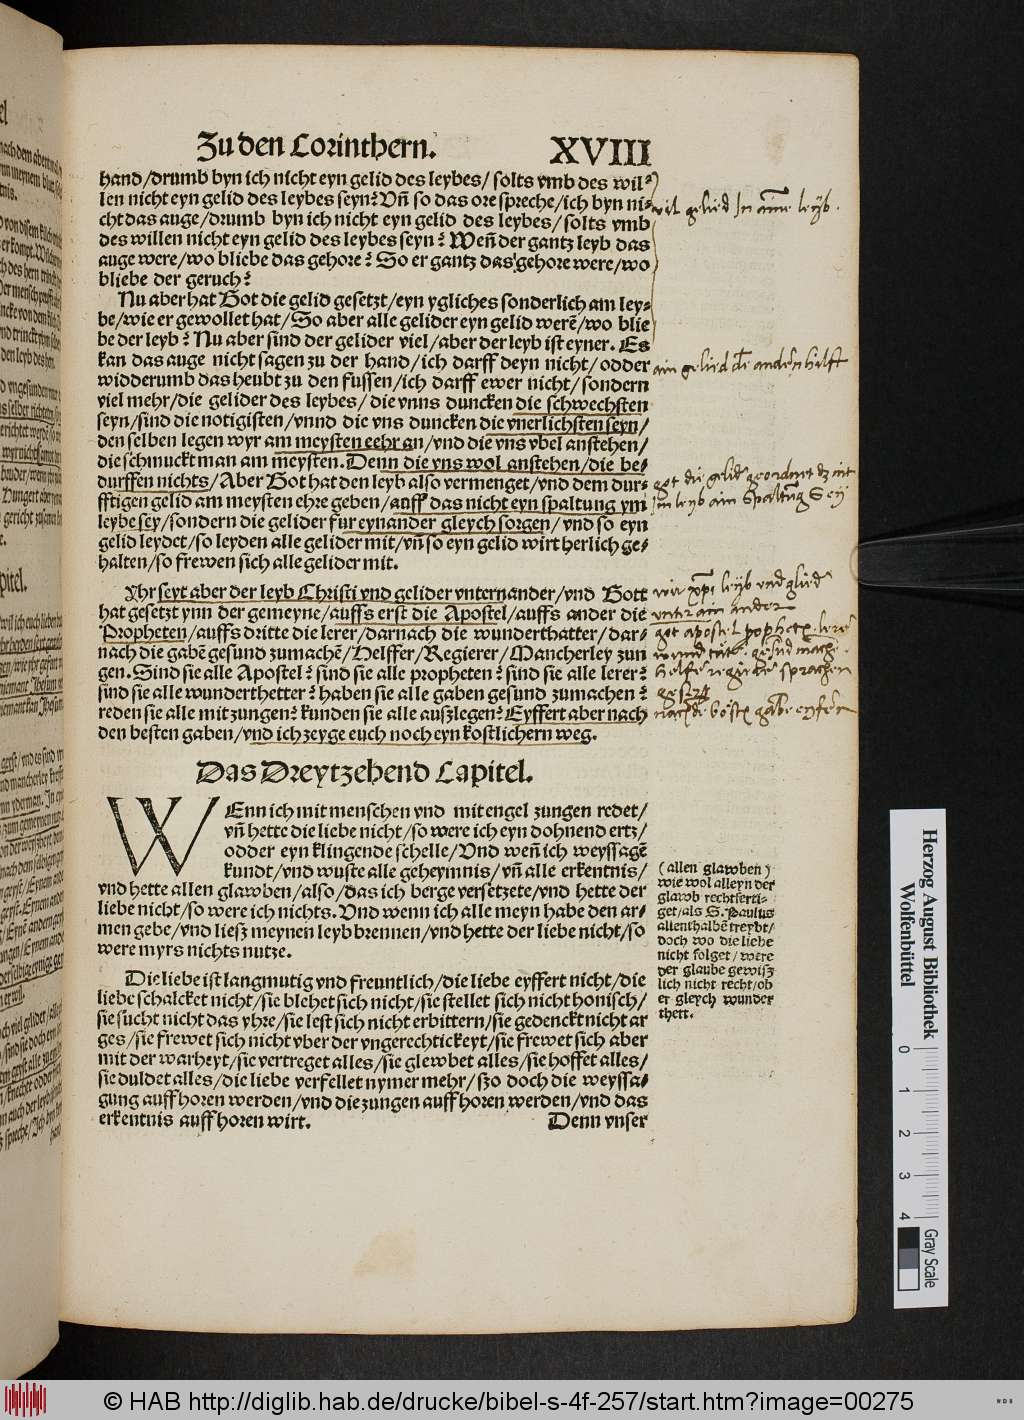 Zu den Corinthern. XVIII
hand/drumb byn ich nicht eyn gelid des leybes/ solts vmb des wil-
len nicht eyn gelid des leybes seyn? Vñ so das ore spreche/ich byn ni-
cht das auge/drumb byn ich nicht eyn gelid des leybes/ solts vmb
des willen nicht eyn gelid des leybes seyn? Weñ der gantz leyb das
auge were/wo bliebe das gehore? So er gantz das gehore were/wo
bliebe der geruch?
Nu aber hat Got die gelid gesetzt/eyn ygliches sonderlich am ley-
be/wie er gewollet hat/So aber alle gelider eyn gelid werẽ/wo blie
be der leyb? Nu aber sind der gelider viel/aber der leyb ist eyner. Es
kan das auge nicht sagen zu der hand/ich darff deyn nicht/odder
widderumb das heubt zu den fussen/ich darff ewer nicht/sondern
viel mehr/die gelider des leybes/die vnns duncken die schwechsten
seyn/sind die notigisten/vnnd die vns duncken die vnerlichsten seyn/
den selben legen wyr am meysten eehr an/vnd die vns vbel anstehen/
die schmuckt man am meysten. Denn die vns wol anstehen/die be-
durffen nichts/Aber Got hat den leyb also vermenget/vnd dem dur-
fftigen gelid am meysten ehre geben/auff das nicht eyn spaltung ym
leybe sey/sondern die gelider fur eynander gleych sorgen/vnd so eyn
gelid leydet/so leyden alle gelider mit/vñ so eyn gelid wirt herlich ge-
halten/so frewen sich alle gelider mit.
Yhr seyt aber der leyb Christi vnd gelider vnternander/vnd Gott
hat gesetzt ynn der gemeyne/auffs erst die Apostel/auffs ander die
Propheten/auffs dritte die lerer/darnach die wunderthatter/dar-
nach die gabẽ gesund zumachẽ/Helffer/Regierer/Mancherley zun
gen. Sind sie alle Apostel? sind sie alle propheten? sind sie alle lerer?
sind sie alle wunderthetter? haben sie alle gaben gesund zumachen?
reden sie alle mit zungen? kunden sie alle auszlegen? Eyffert aber nach
den besten gaben/vnd ich zeyge euch noch eyn kostlichern weg.
vil gelied In aime leyb.
ain gelied dẽ andern hilft
Das Dreytzehend Capitel.
WEnn ich mit menschen vnd mit engel zungen redet/
vñ hette die liebe nicht/so were ich eyn dohnend ertz/
odder eyn klingende schelle/Vnd weñ ich weyssagẽ
kundt/vnd wuste alle geheymnis/vñ alle erkentnis/
vnd hette allen glawben/also/das ich berge versetzete/vnd hette der
liebe nicht/so were ich nichts. Vnd wenn ich alle meyn habe den ar-
men gebe/vnd liesz meynen leyb brennen/vnd hette der liebe nicht/so
were myrs nichts nutze.
Die liebe ist langmutig vnd freuntlich/die liebe eyffert nicht/die
liebe schalcket nicht/sie blehet sich nicht/sie stellet sich nicht honisch/
sie sucht nicht das yhre/sie lest sich nicht erbittern/sie gedenckt nicht ar
ges/sie frewet sich nicht vber der vngerechtickeyt/sie frewet sich aber
mit der warheyt/sie vertreget alles/sie glewbet alles/sie hoffet alles/
sie duldet alles/die liebe verfellet nymer mehr/szo doch die weyssa-
gung auffhoren werden/vnd die zungen auffhoren werden/vnd das
erkentnis auffhoren wirt. Denn vnser
(allen glawben)
wie wol alleyn der
glawb rechtferti-
get/als S. Paulus
allenthalbẽ treybt/
doch wo die liebe
nicht folget/were
der glaube gewisz
lich nicht recht/ob
er gleych wunder
thett.
Herzog August Bibliothek
Wolfenbüttel
0 1 2 3 4
Gray Scale
© HAB http://diglib.hab.de/drucke/bibel-s-4f-257/start.htm?image=00275